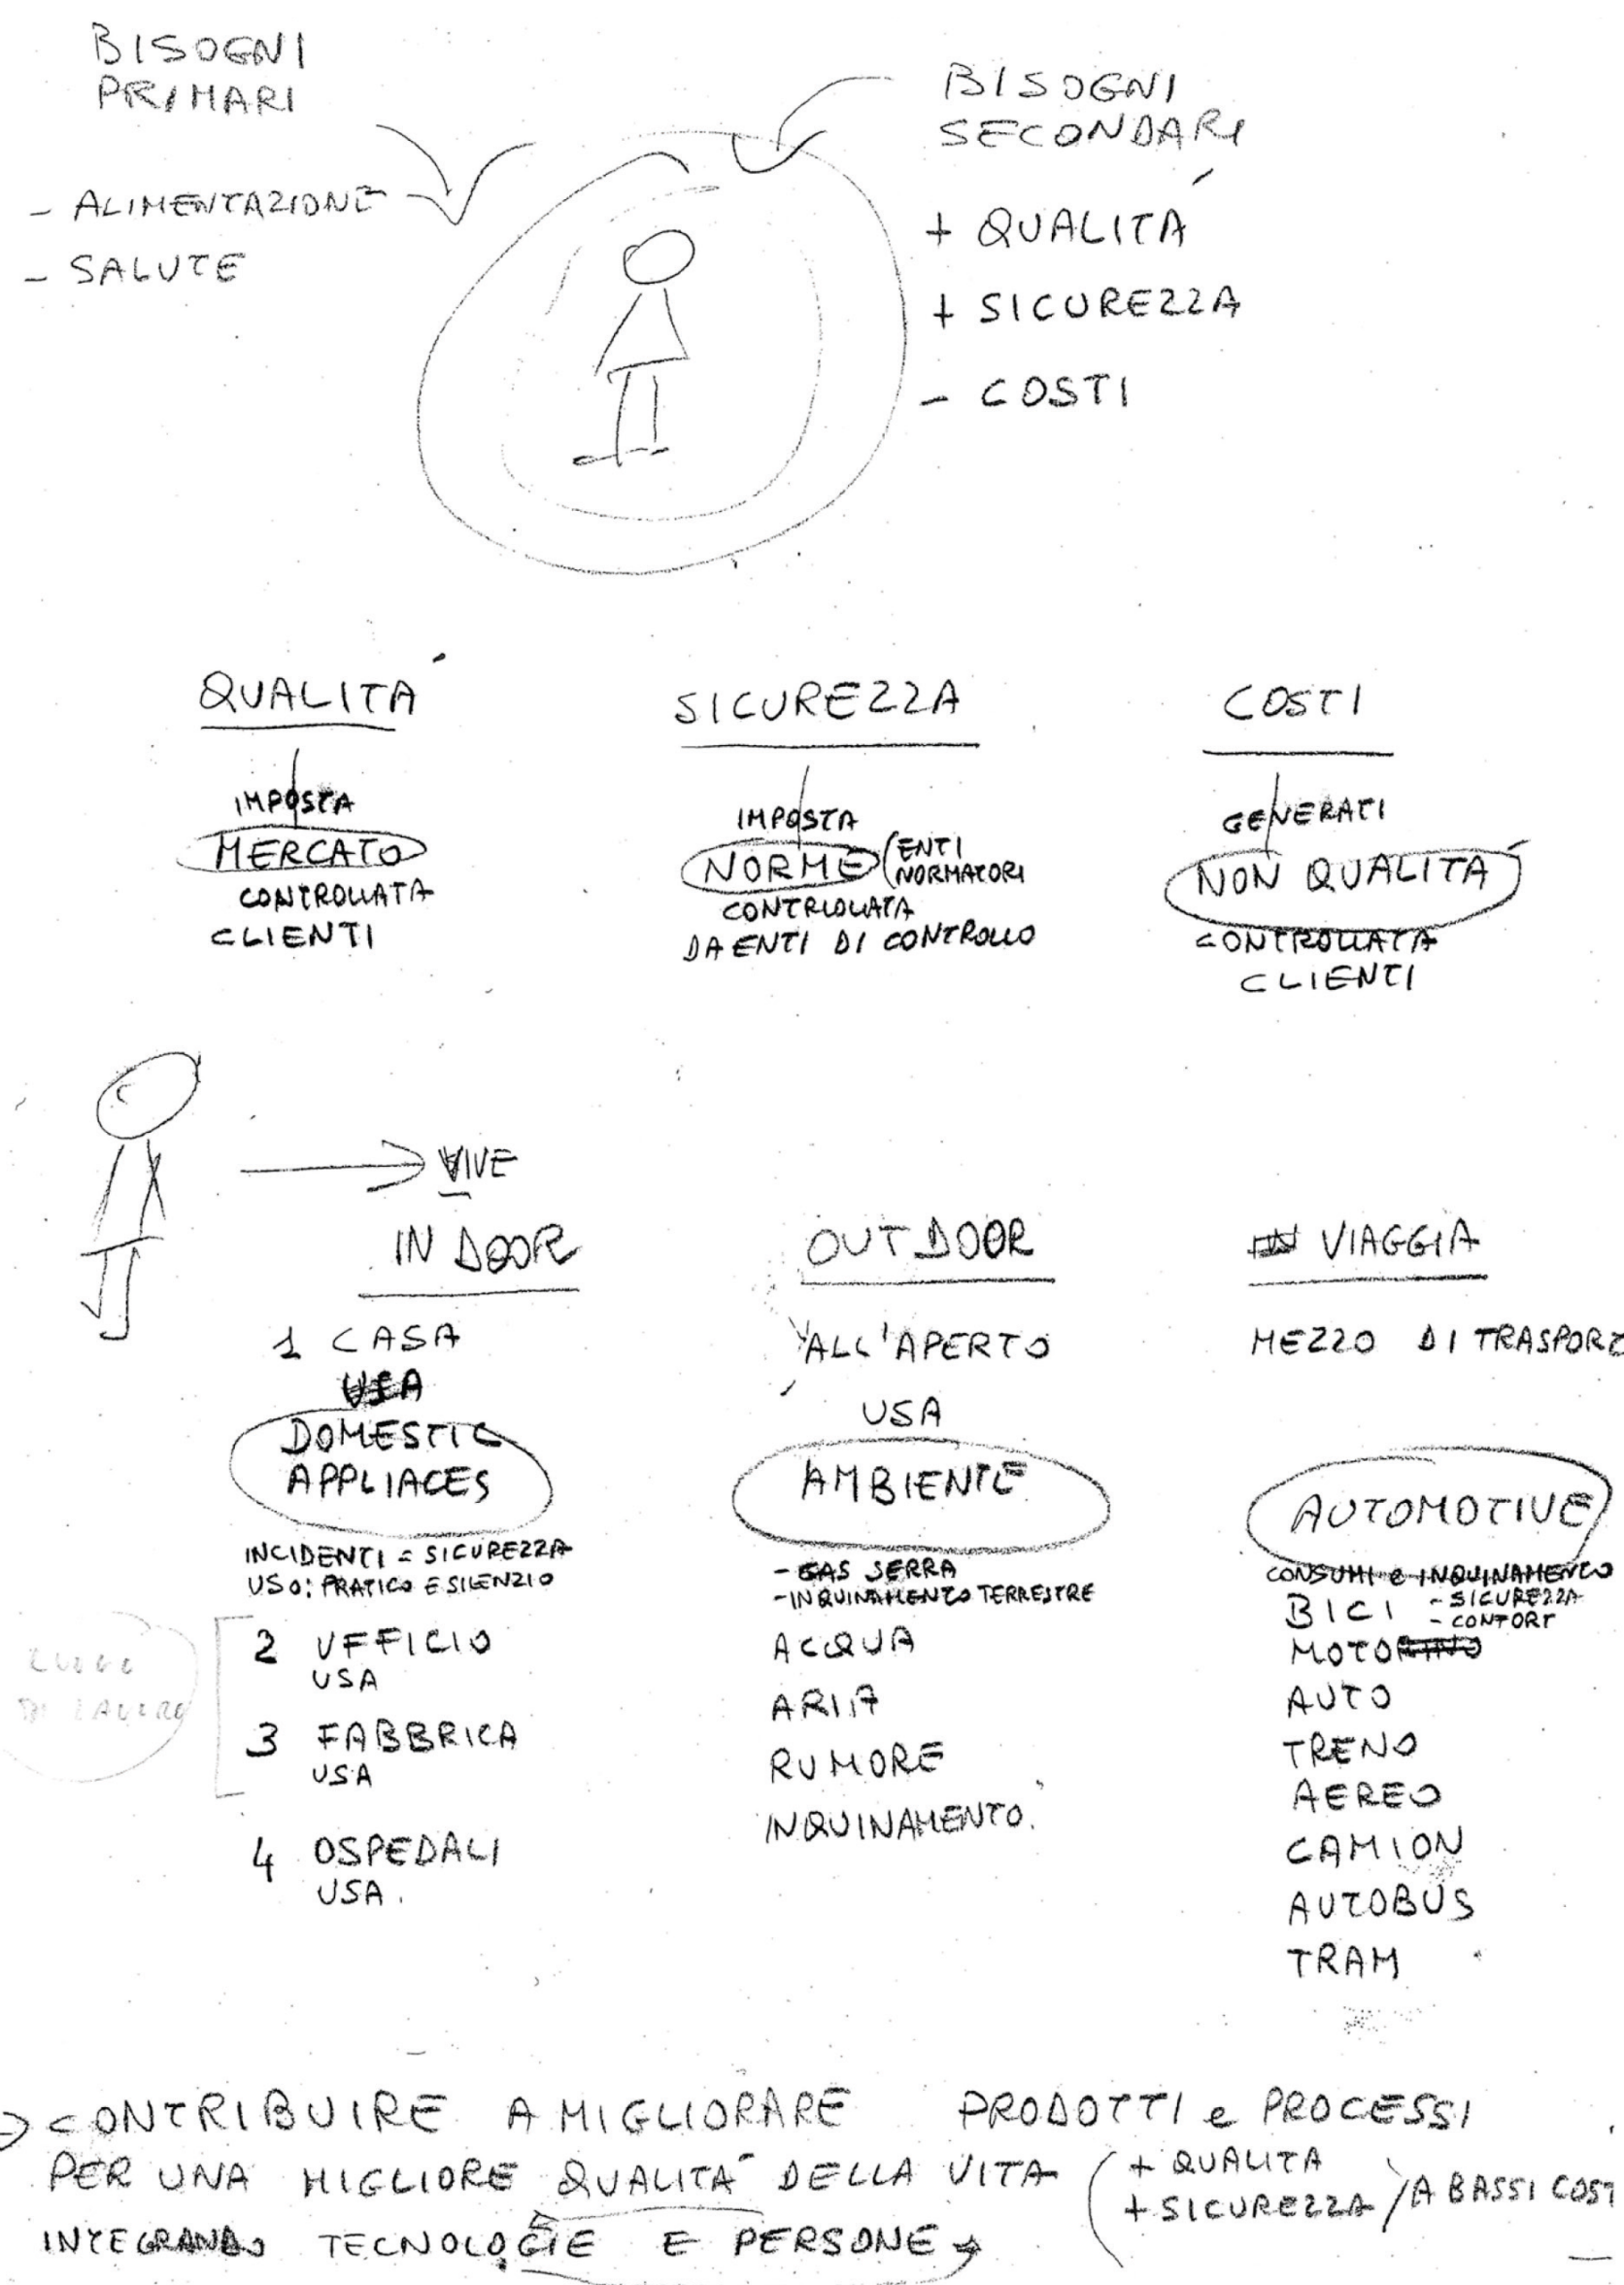 BISOGNI
PRIMARI
- ALIMENTAZIONE
- SALUTE
BISOGNI
SECONDARI
+ QUALITÀ
+ SICUREZZA
- COSTI
QUALITÀ
IMPOSTA
MERCATO
CONTROLLATA
CLIENTI
SICUREZZA
IMPOSTA
NORME (ENTI
NORMATORI
CONTRLOLLATA
DA ENTI DI CONTROLLO
COSTI
GENERATI
NON QUALITÀ
CONTROLLATA
CLIENTI
VIVE
IN DOOR
1 CASA
USA
DOMESTIC
APPLIACES
INCIDENTI = SICUREZZA
USO: PRATICO E SILENZIO
LUOGO
DI LAVORO
2 UFFICIO
USA
3 FABBRICA
USA
4 OSPEDALI
USA.
OUTDOOR
ALL'APERTO
USA
AMBIENTE
- GAS SERRA
- INQUINAMENTO TERRESTRE
ACQUA
ARIA
RUMORE
INQUINAMENTO.
VIAGGIA
MEZZO DI TRASPORT
AUTOMOTIVE
CONSUMI e INQUINAMENTO
BICI - SICUREZZA
- CONFORT
MOTO
AUTO
TRENO
AEREO
CAMION
AUTOBUS
TRAM
CONTRIBUIRE A MIGLIORARE PRODOTTI e PROCESSI
PER UNA MIGLIORE QUALITÀ DELLA VITA (+ QUALITA
+ SICUREZZA) A BASSI COSTI
INTEGRANDO TECNOLOGIE E PERSONE